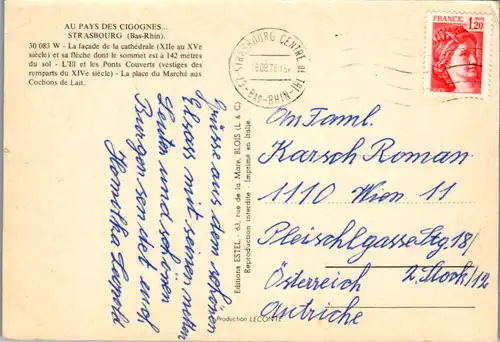 AU PAYS DES CIGOGNES...
STRASBOURG (Bas-Rhin).
30 083 W - La façade de la cathédrale (XIIe au XVe
siècle) et sa flèche dont le sommet est à 142 mètres
du sol - L'Ill et les Ponts Couverts (vestiges des
remparts du XIVe siècle) - La place du Marché aux
Cochons de Lait.
Grüsse aus dem schönen
Elsass mit seinen netten
Leuten und schönen
Burgen sendet euch
Leopold
Editions ESTEL - 63, rue de la Mare, BLOIS (L & C)
Reproduction interdite - Imprimé en Italie.
Production LECONTE
STRASBOURG CENTRE DE TRI
67 - BAS-RHIN
FRANCE
1,20
An Faml.
Karsch Roman
1110 Wien 11
Pleischlgasse Stg. 18/
2. Stock/12
Österreich
Autriche